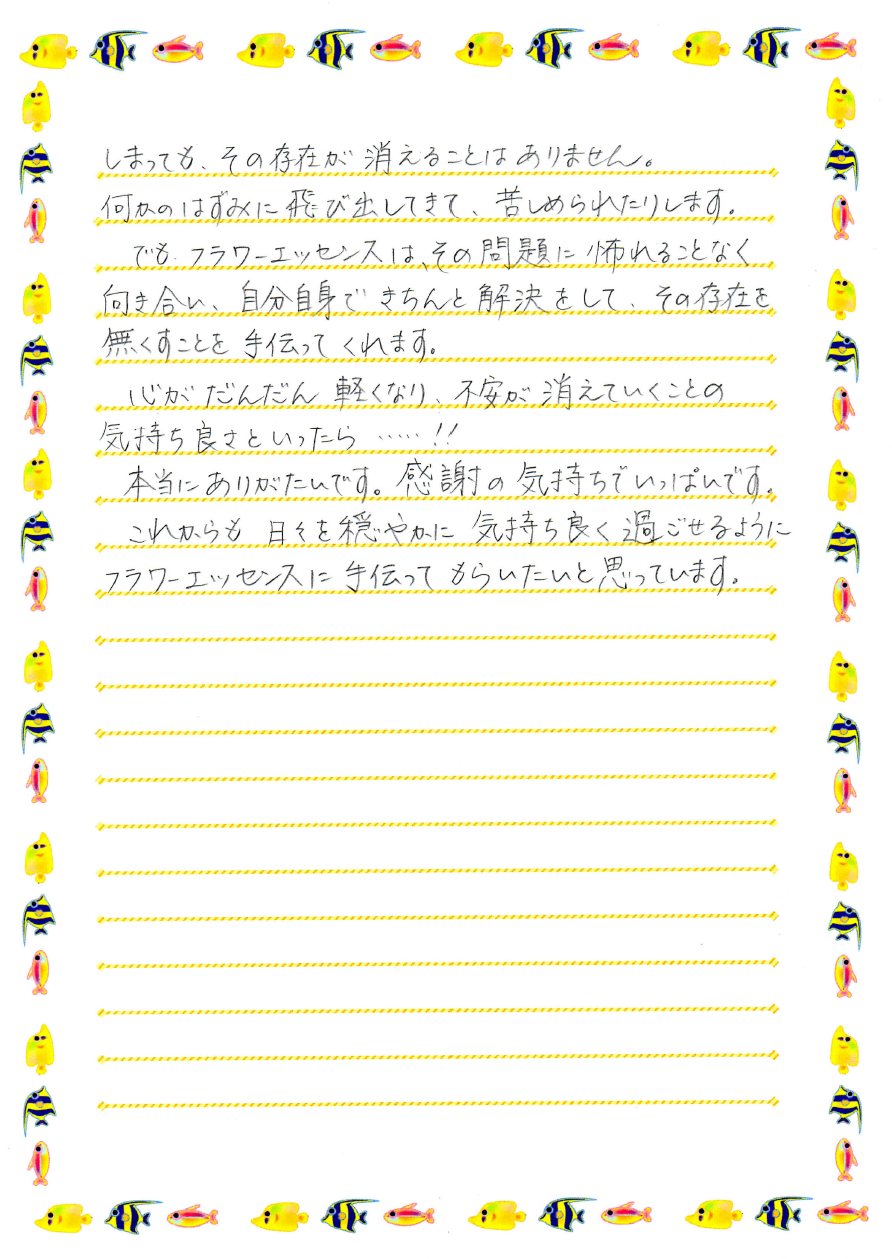 しまっても、その存在が消えることはありません。
何かのはずみに飛び出してきて、苦しめられたりします。
でも、フラワーエッセンスは、その問題に怖れることなく
向き合い、自分自身できちんと解決をして、その存在を
無くすことを手伝ってくれます。
心がだんだん軽くなり、不安が消えていくことの
気持ち良さといったら……!!
本当にありがたいです。感謝の気持ちでいっぱいです。
これからも日々を穏やかに気持ち良く過ごせるように
フラワーエッセンスに手伝ってもらいたいと思っています。